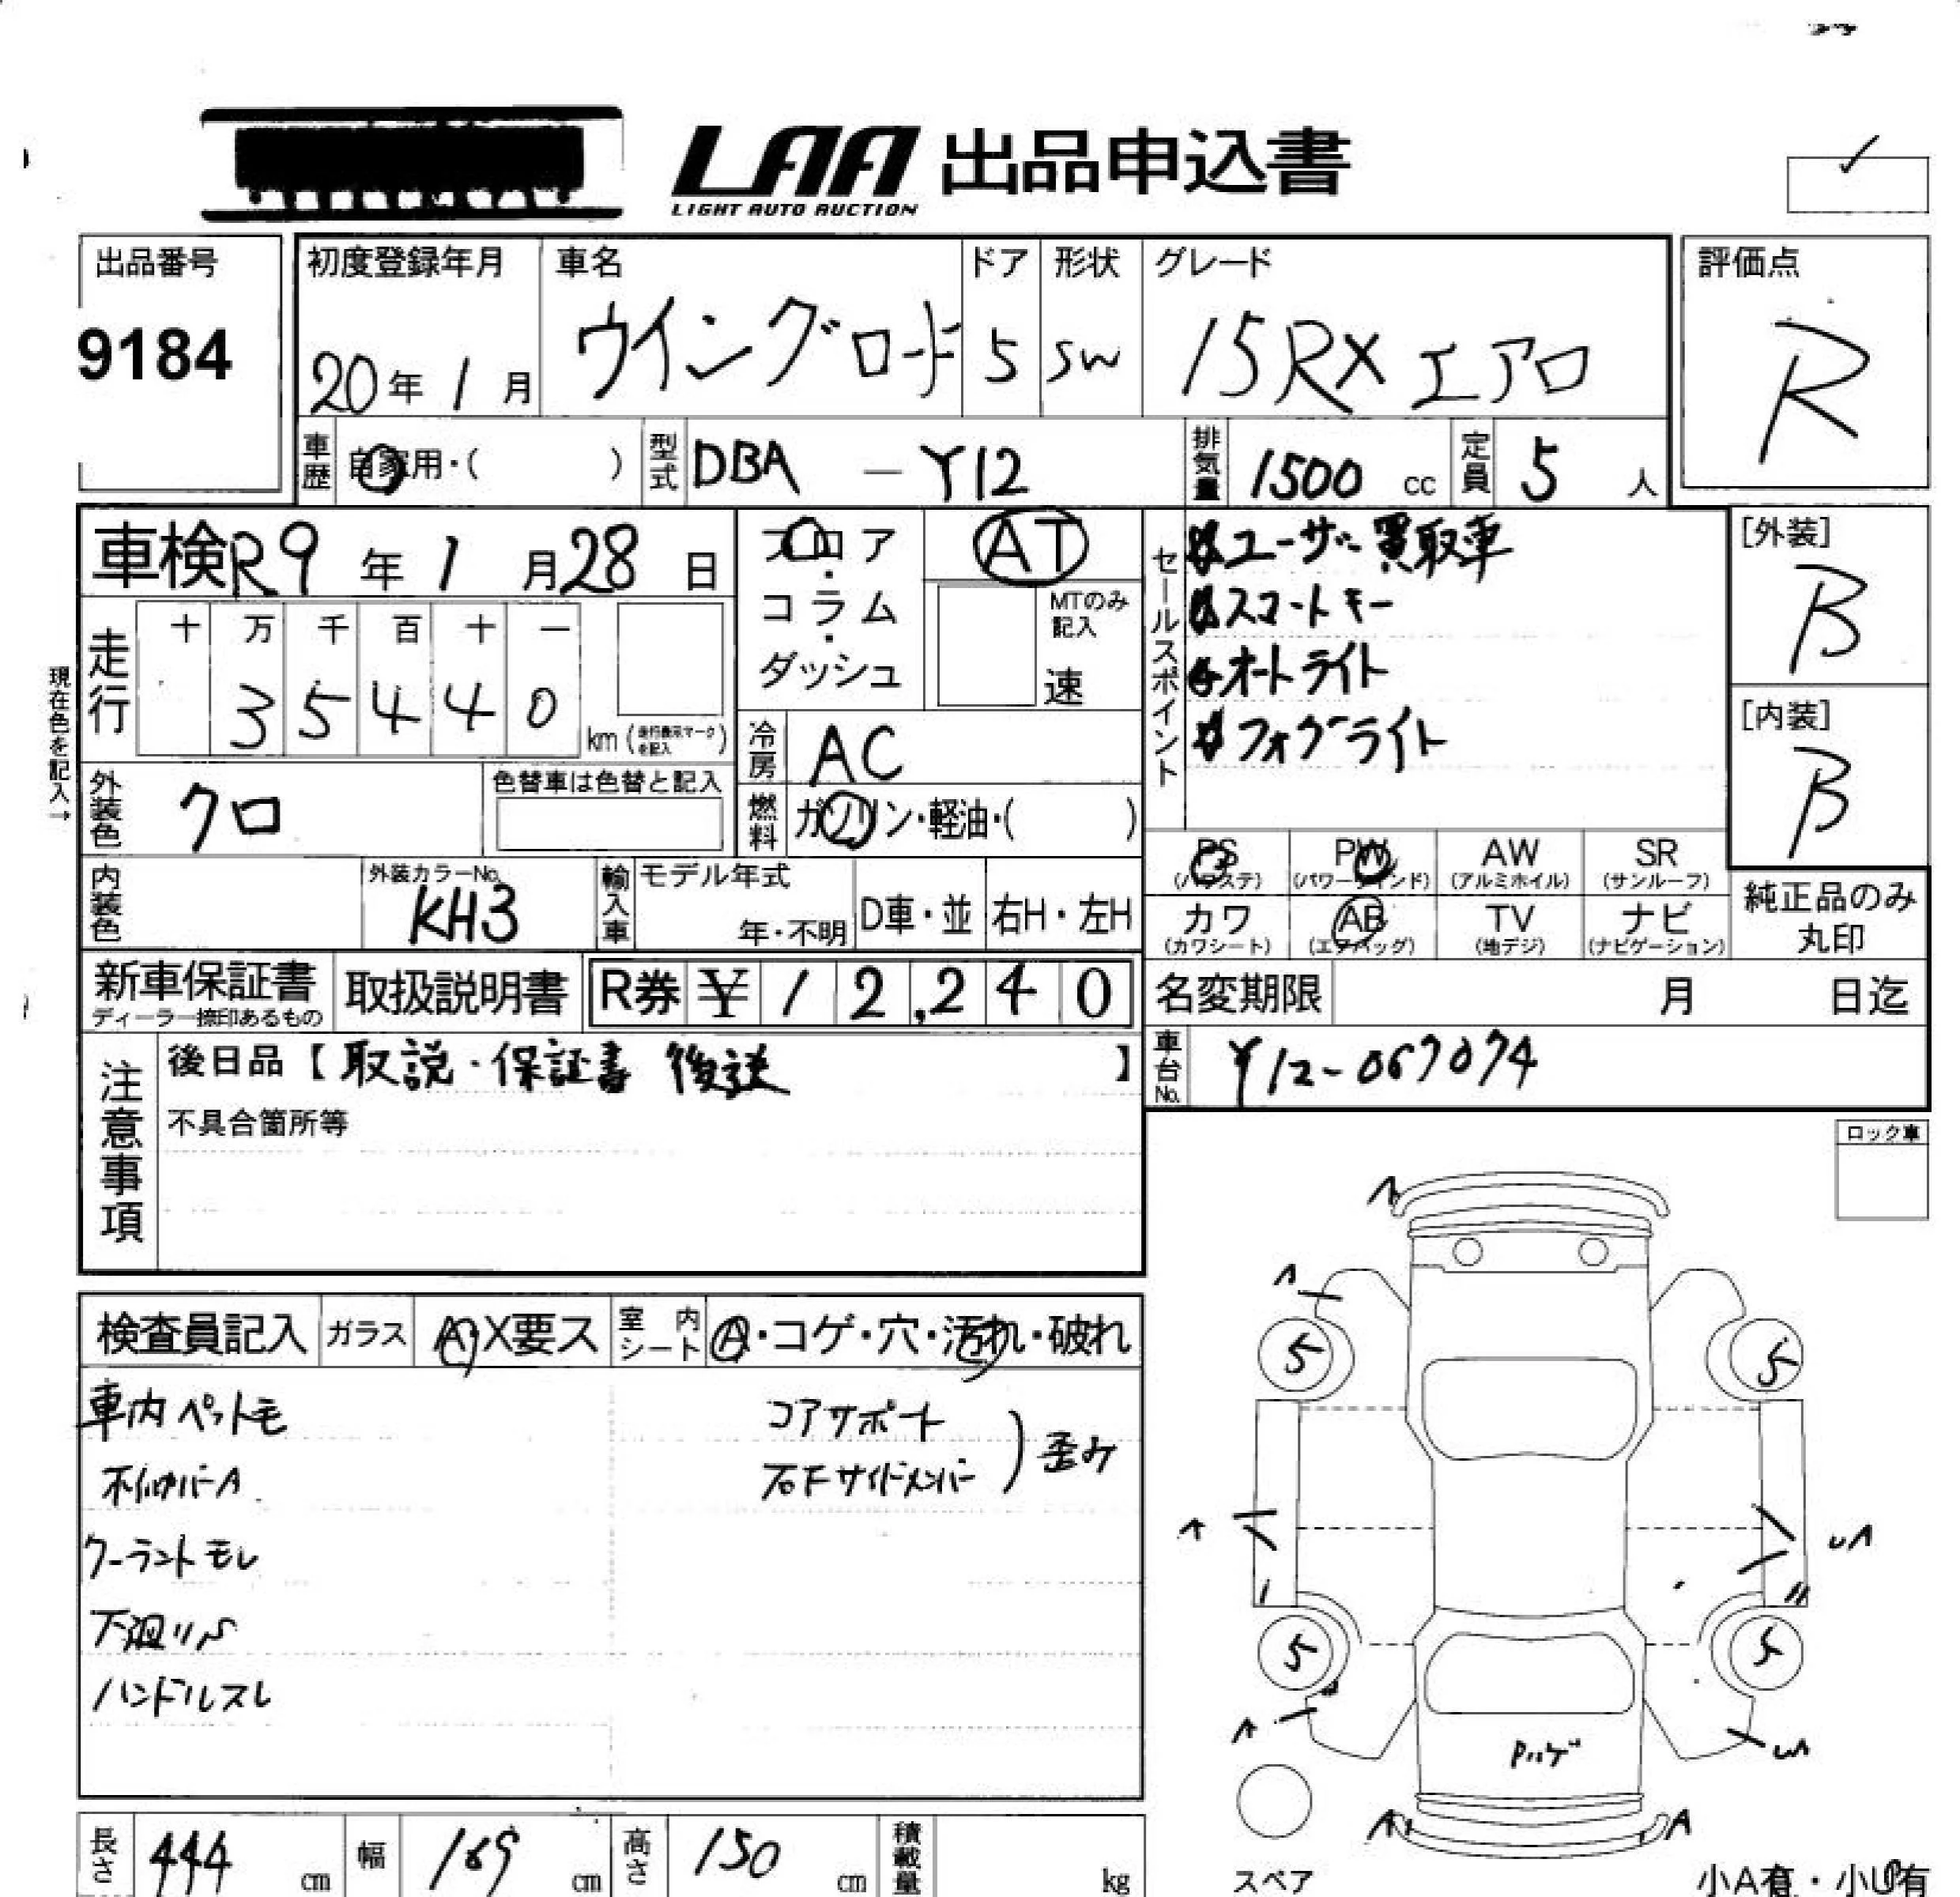 LAA 出品申込書
LIGHT AUTO AUCTION
出品番号
9184
初度登録年月
20年1月
車名
ウイングロード
ドア
5
形状
SW
グレード
15RX エアロ
評価点
R
車歴
自家用・( )
型式
DBA - Y12
排気量
1500 cc
定員
5 人
車検 R9年1月28日
フロア・コラム・ダッシュ
AT
MTのみ記入
速
セールスポイント
ユーザー買取車
スマートキー
オートライト
フォグライト
[外装]
B
[内装]
B
現在色を記入→
走行
十 万 千 百 十 一
3 5 4 4 0
km (走行表示マークを記入)
冷房
AC
燃料
ガソリン・軽油・( )
外装色
クロ
色替車は色替と記入
内装色
外装カラーNo.
KH3
輸入車
モデル年式
年・不明
D車・並
右H・左H
PS
(パワステ)
PW
(パワーウインド)
AW
(アルミホイル)
SR
(サンルーフ)
カワ
(カワシート)
AB
(エアバッグ)
TV
(地デジ)
ナビ
(ナビゲーション)
純正品のみ
丸印
新車保証書
ディーラー捺印あるもの
取扱説明書
R券 ¥12,240
名変期限
月 日迄
注意事項
後日品【取説・保証書 後送】
不具合箇所等
車台No.
Y12-067074
ロック車
検査員記入
ガラス
A・X要ス
室内シート
A・コゲ・穴・汚れ・破れ
車内ペット毛
コアサポート
右Fサイドメンバー
歪み
クーラントモレ
下廻りS
ハンドルスレ
A
A
5
5
A
UA
5
5
A
UA
Rハゲ
A
A
スペア
小A有・小U有
長さ
444 cm
幅
169 cm
高さ
150 cm
積載量
kg